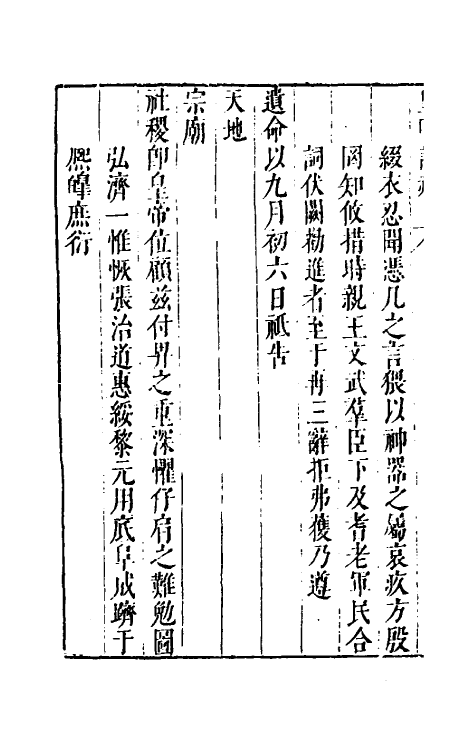 綴衣忍聞憑几之言猥以神器之屬哀疚方殷
罔知攸措時親王文武羣臣下及耆老軍民合
詞伏闕勸進者至于再三辭拒弗獲乃遵
遺命以九月初六日祗告
天地
宗廟
社稷卽皇帝位顧兹付畀之重深懼仔肩之難勉圖
弘濟一惟恢張治道惠綏黎元用底阜成躋于
熈皥庶衍